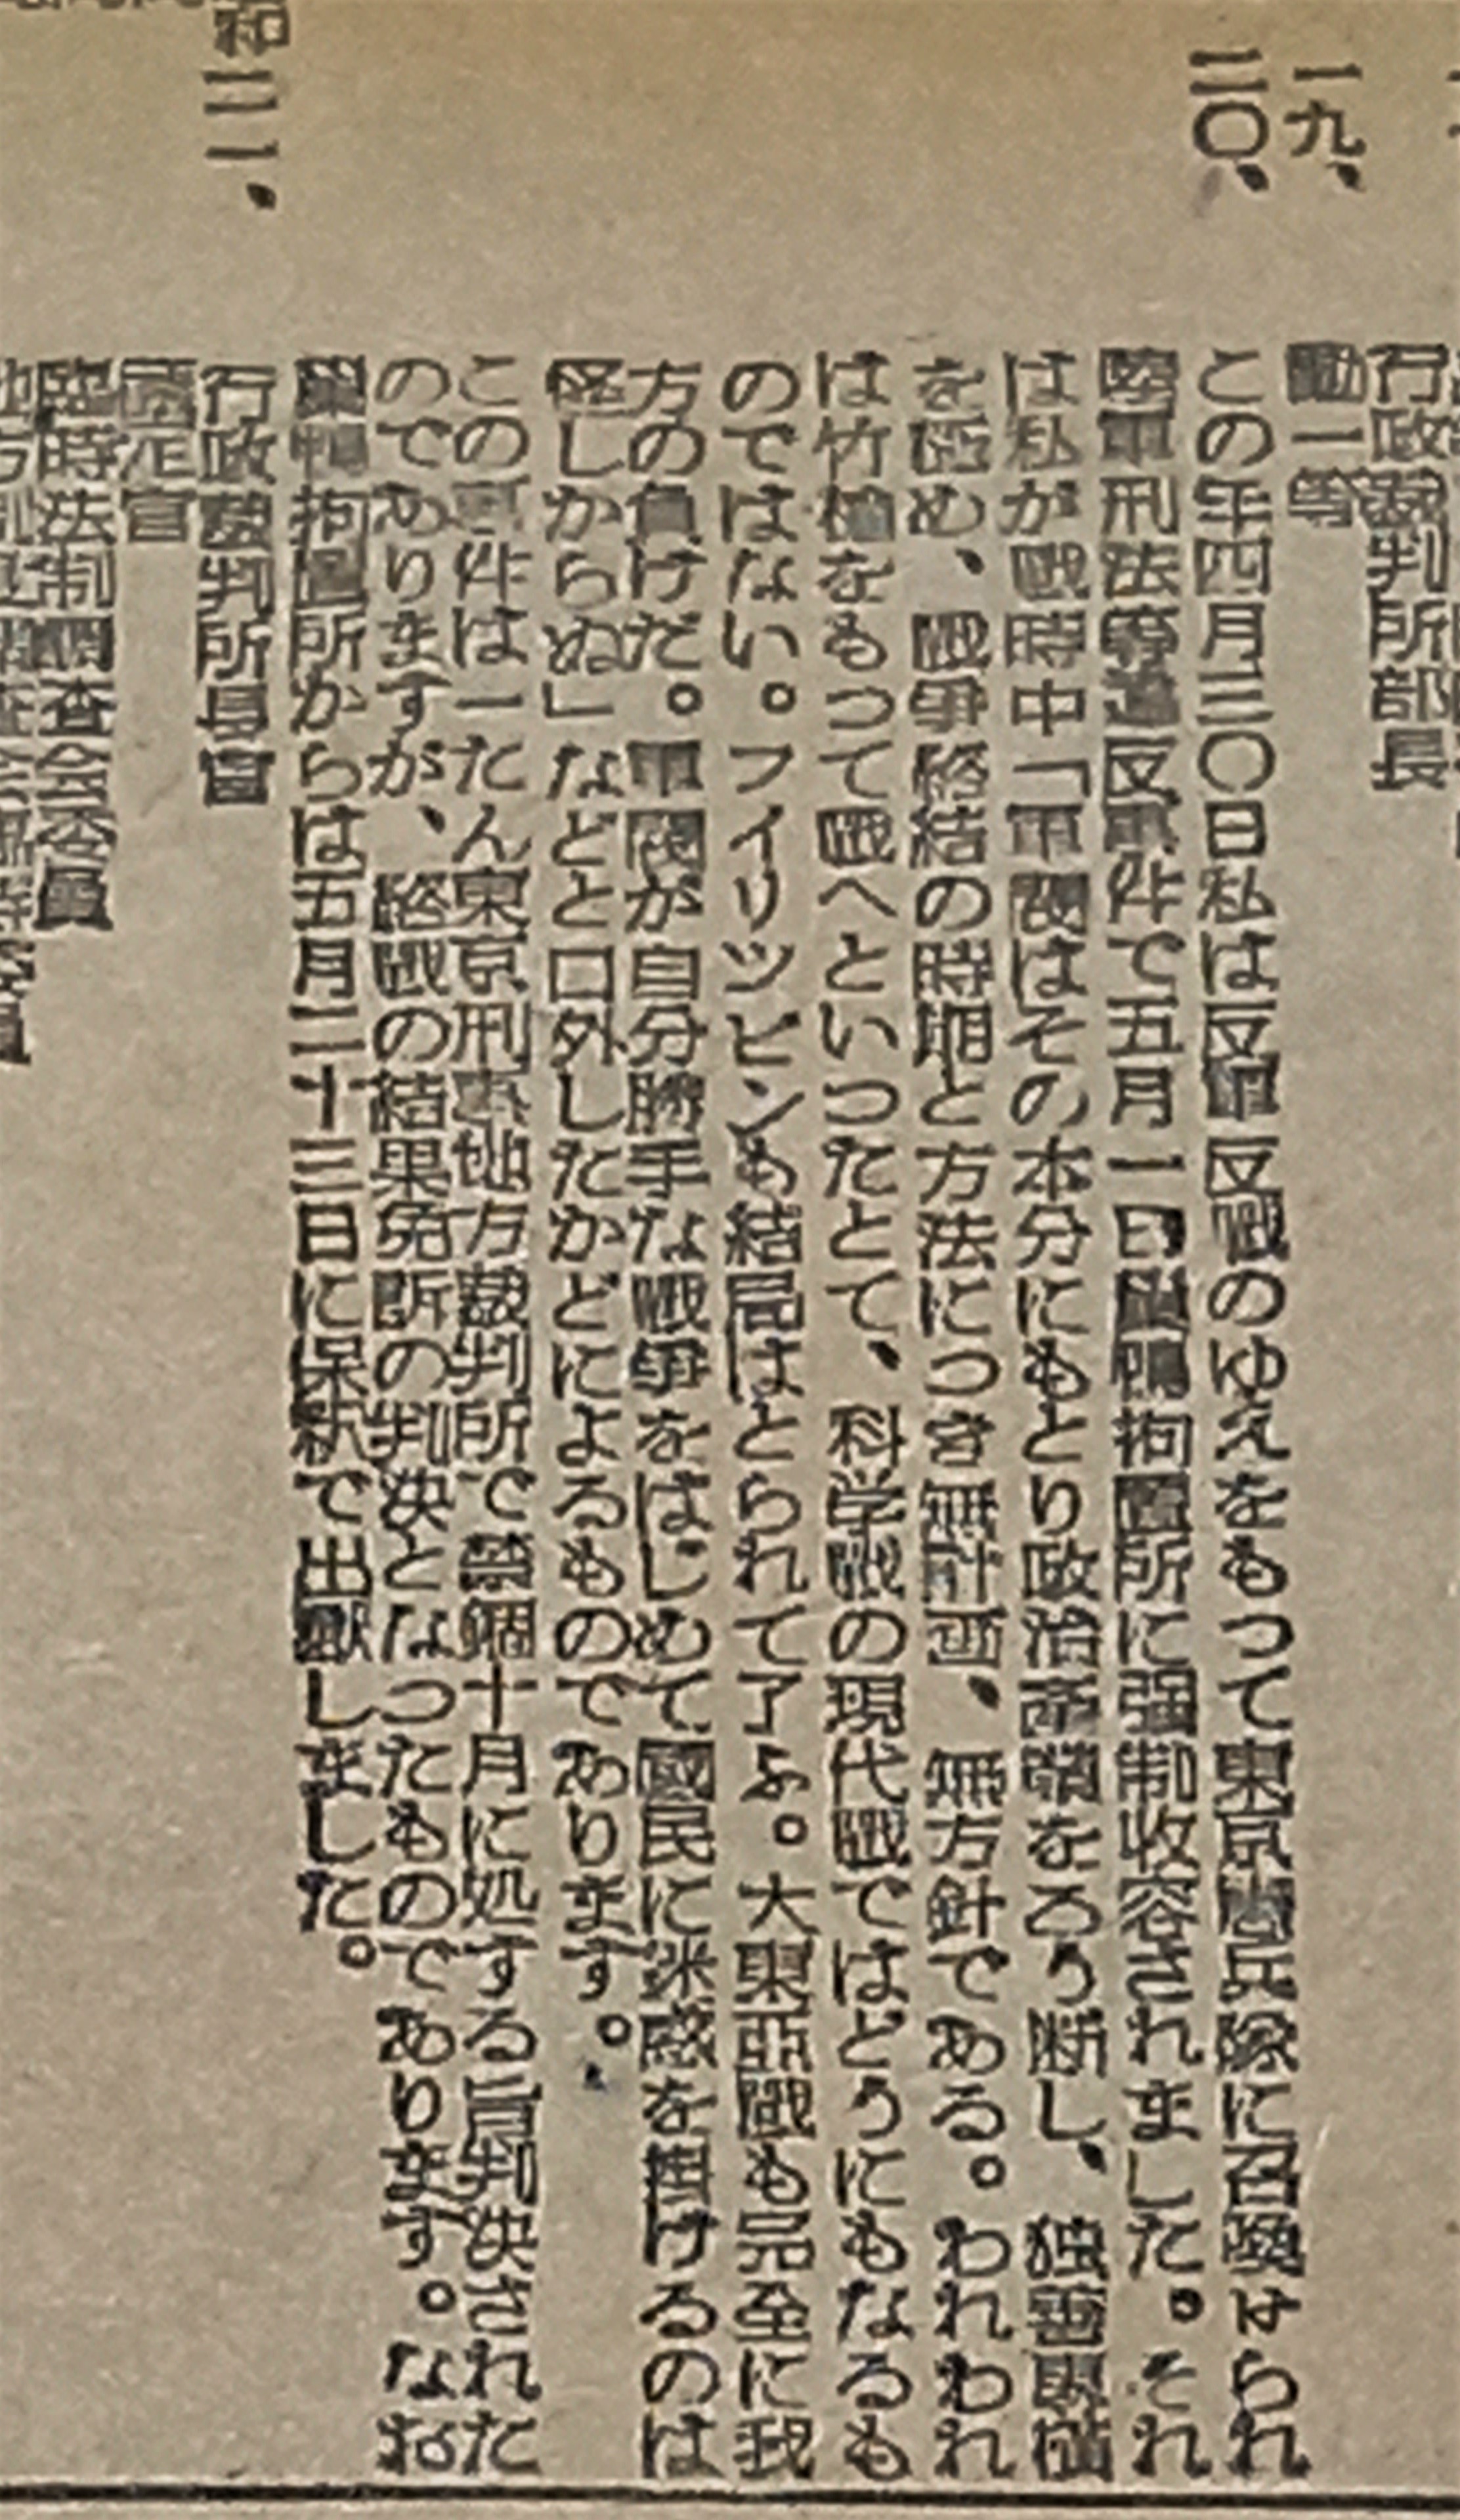 行政裁判所部長
一九、
勲一等
二〇、
この年四月三〇日私は反軍反戦のゆえをもつて東京憲兵隊に召喚せられ
陸軍刑法等違反事件で五月一日巣鴨拘置所に强制收容されました。それ
は私が戦時中「軍閥はその本分にもとり政治斎端をろう断し、独善専横
を極め、戦争終結の時期と方法につき無計画、無方針である。われわれ
は竹槍をもつて戦へといつたとて、科学戦の現代戦ではどうにもなるも
のではない。フイリツピンも結局はとられて了ふ。大東亞戦も完全に我
方の負けだ。軍閥が自分勝手な戦爭をはじめて國民に迷惑を掛けるのは
怪しからぬ」などと口外したかどによるものであります。
この事件は一たん東京刑事地方裁判所で禁錮十月に処する旨判決された
のでありますが、終戦の結果免訴の判決となつたものであります。なお
巣鴨拘置所からは五月二十三日に保釈で出獄しました。
昭和二一、
行政裁判所長官
鑑定官
臨時法制調査会委員